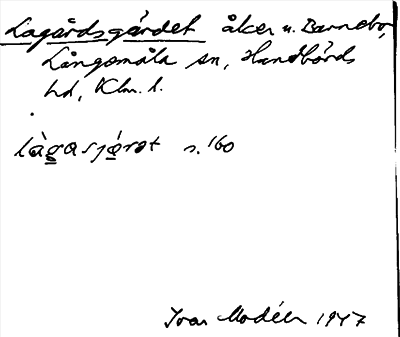 Lagårdsgärdet åker u. Barnebo,
Långemåla sn, Handbörds
hd, Klm. l.
làgasjǻrət s. 160
Ivar Modéer 1947